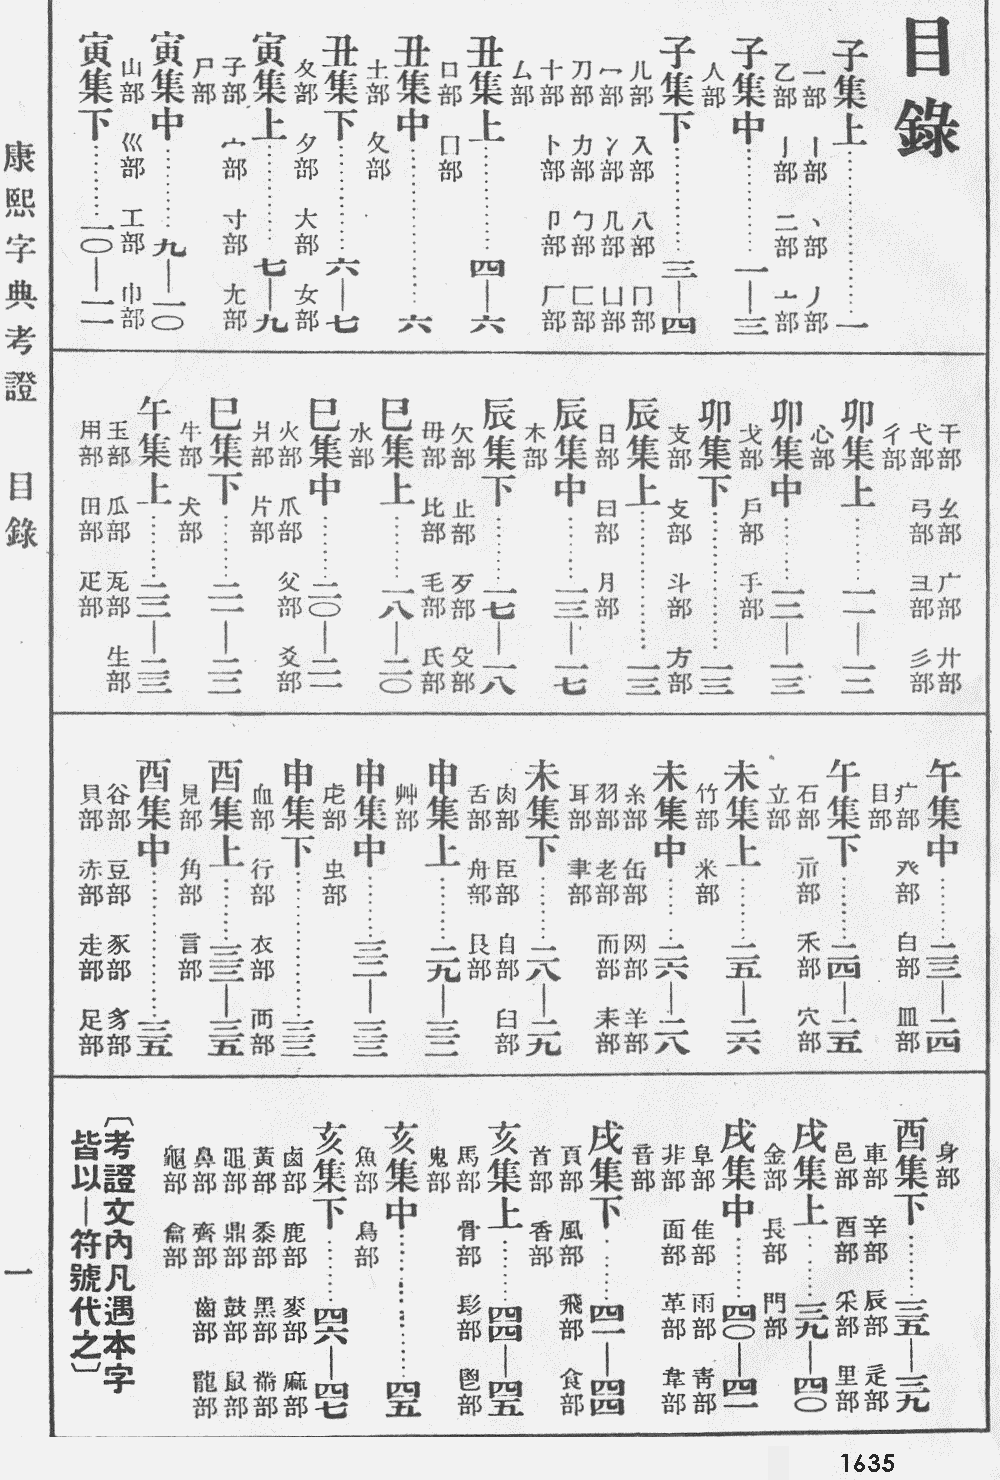 目錄
子集上……………一
一部　丨部　丶部　丿部
乙部　亅部　二部　亠部
子集中……………一—三
人部
子集下……………三—四
儿部　入部　八部　冂部
冖部　冫部　几部　凵部
刀部　力部　勹部　匚部
十部　卜部　卩部　厂部
厶部
丑集上……………四—六
口部　囗部
丑集中……………六
土部　夂部
丑集下……………六—七
夊部　夕部　大部　女部
寅集上……………七—九
子部　宀部　寸部　尢部
尸部
寅集中……………九—一〇
山部　巛部　工部　巾部
寅集下……………一〇—一一
干部　幺部　广部　廾部
弋部　弓部　彐部　彡部
彳部
卯集上……………一一—一二
心部
卯集中……………一二—一三
戈部　戶部　手部
卯集下……………一三
支部　攴部　斗部　方部
辰集上……………一三
日部　曰部　月部
辰集中……………一三—一七
木部
辰集下……………一七—一八
欠部　止部　歹部　殳部
毋部　比部　毛部　氏部
巳集上……………一八—二〇
水部
巳集中……………二〇—二一
火部　爪部　父部　爻部
爿部　片部
巳集下……………二一—二二
牛部　犬部
午集上……………二二—二三
玉部　瓜部　瓦部　生部
用部　田部　疋部
午集中……………二三—二四
疒部　癶部　白部　皿部
目部
午集下……………二四—二五
石部　示部　禾部　穴部
立部
未集上……………二五—二六
竹部　米部
未集中……………二六—二八
糸部　缶部　网部　羊部
羽部　老部　而部　耒部
耳部　聿部
未集下……………二八—二九
肉部　臣部　自部　臼部
舌部　舟部　艮部
申集上……………二九—三二
艸部
申集中……………三二—三三
虍部　虫部
申集下……………三三
血部　行部　衣部　襾部
酉集上……………三三—三五
見部　角部　言部
酉集中……………三五
谷部　豆部　豕部　豸部
貝部　赤部　走部　足部
身部
酉集下……………三五—三九
車部　辛部　辰部　辵部
邑部　酉部　釆部　里部
戌集上……………三九—四〇
金部　長部　門部
戌集中……………四〇—四一
阜部　隹部　雨部　靑部
非部　面部　革部　韋部
音部
戌集下……………四一—四四
頁部　風部　飛部　食部
首部　香部
亥集上……………四四—四五
馬部　骨部　髟部　鬯部
鬼部
亥集中……………四五
魚部　鳥部
亥集下……………四六—四七
鹵部　鹿部　麥部　麻部
黃部　黍部　黑部　黹部
黽部　鼎部　鼓部　鼠部
鼻部　齊部　齒部　龍部
龜部　龠部
〔考證文內凡遇本字
皆以—符號代之〕
康熙字典考證　目錄
一
1635